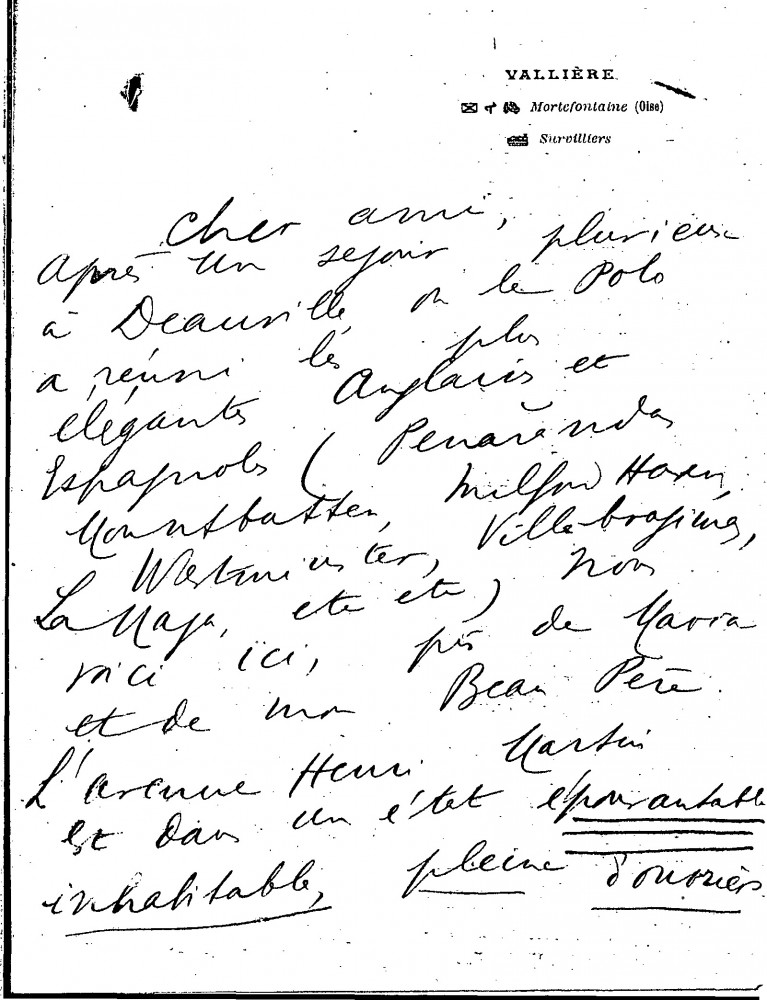 VALLIÈRE.
Mortefontaine (Oise)
Survilliers
Cher ami,
Après un séjour plurieux
à Deauville où le Polo
a réuni les plus
élégants Anglais et
Espagnols ( Penaranda
Mountbatten, Milford Haven,
Westminster, Villabragima,
La Maja, etc etc) nous
voici ici, près de Maria
et de mon Beau Père.
L'avenue Henri Martin
est dans un état épouvantable
inhabitable, pleine d'ouvriers